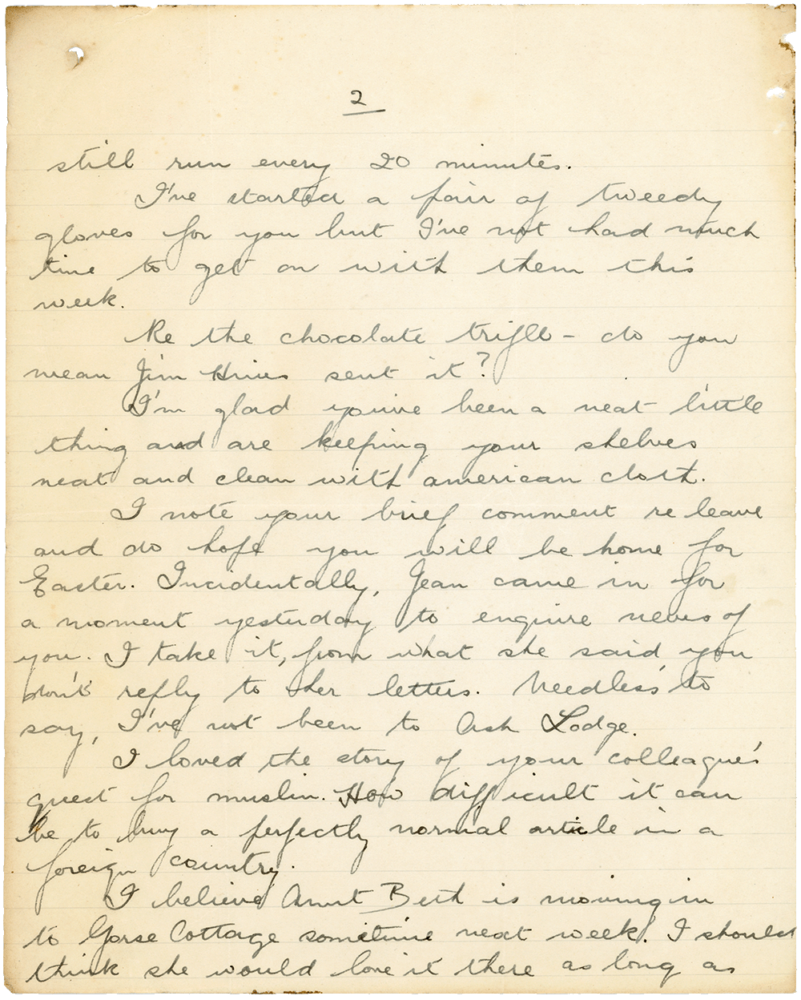 2
still run every 20 minutes.
I've started a pair of tweedy
gloves for you but I've not had much
time to get on with them this
week.
Re the chocolate trifle - do you
mean Jim sent it?
I'm glad you've been a neat little
thing and are keeping your shelves
neat and clean with american cloth.
I note your brief comment re leave
and do hope you will be home for
Easter. Incidentally, Jean came in for
a moment yesterday to enquire news of
you. I take it, from what she said you
don't reply to her letters. Needless to
say, I've not been to Ash Lodge.
I loved the story of your colleague's
quest for muslin. How difficult it can
be to buy a perfectly normal article in a
foreign country.
I believe Aunt Beth is moving in
to Gorse Cottage sometime next week. I should
think she would love it there as long as